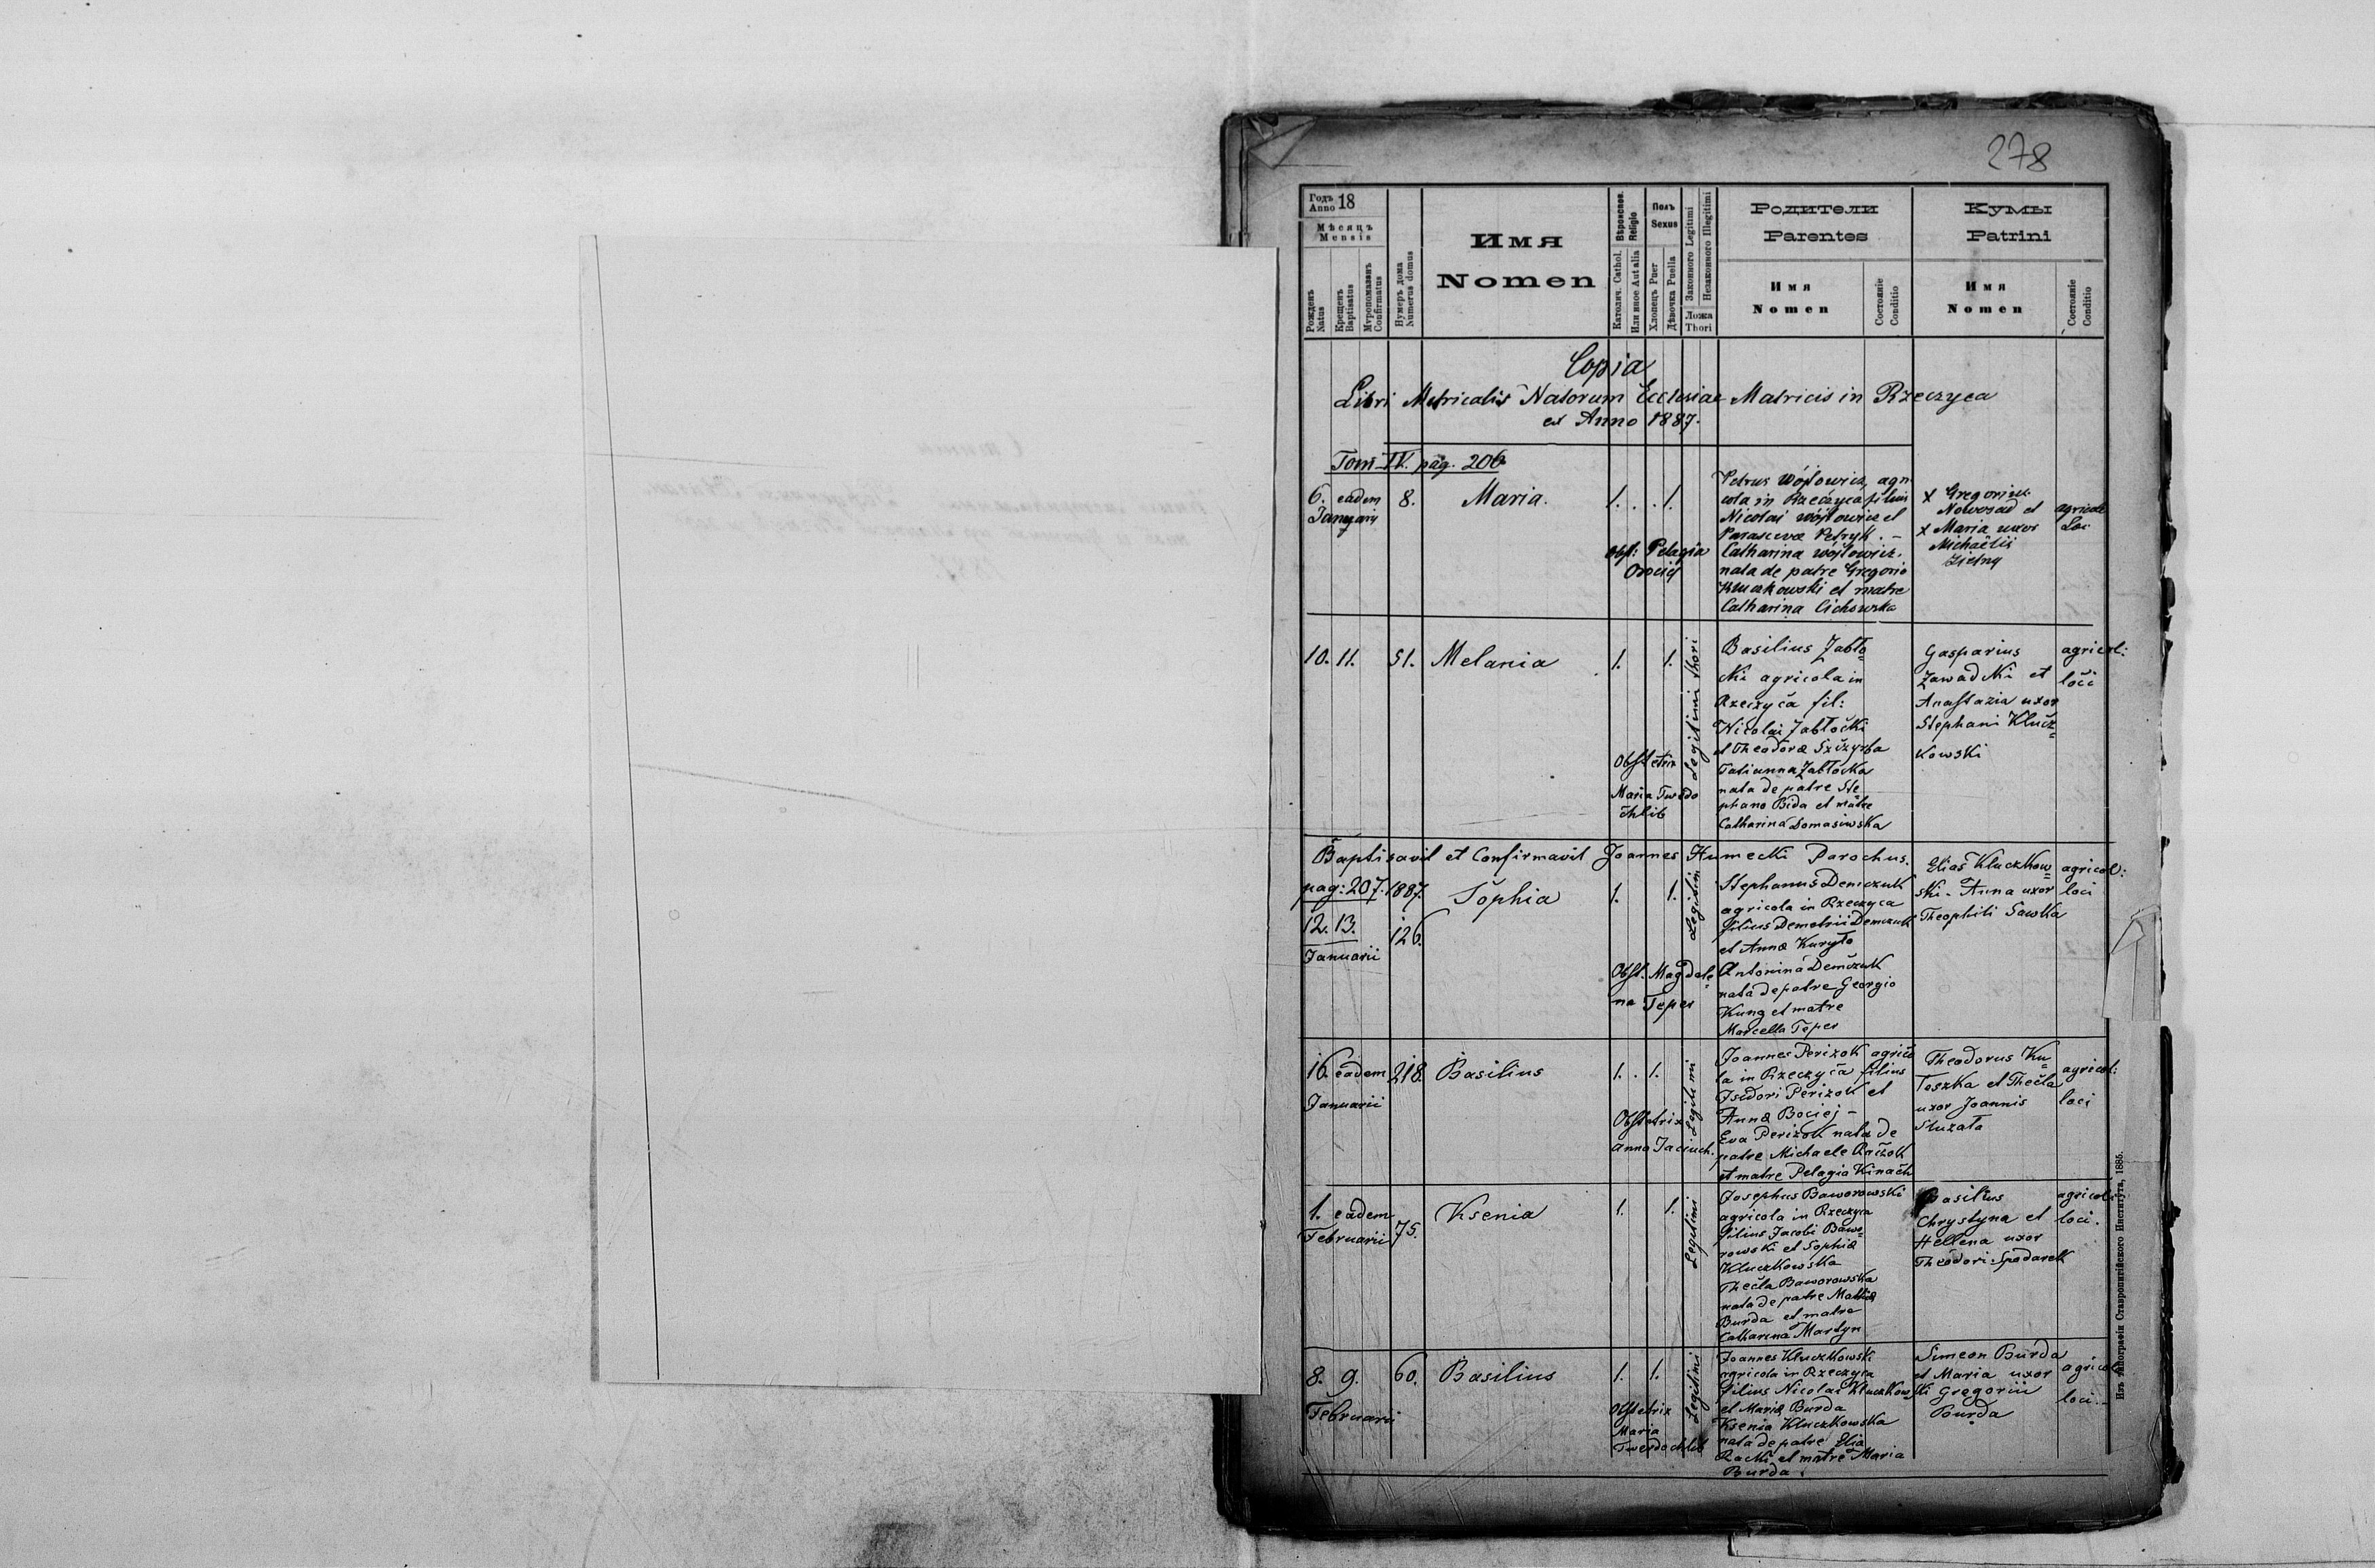 278
Годъ
Anno 18
Мѣсяцъ
Mensis
Рожденъ
Natus
Крещенъ
Baptisatus
Мνропомазанъ
Confirmatus
Нумеръ дома
Numerus domus
Имя
Nomen
Вѣроиспов.
Religio
Католич. Cathol.
Или иное Aut alia
Полъ
Sexus
Хлопецъ Puer
Дѣвочка Puella
Законного Legitimi
Незаконного Illegitimi
Ложа
Thori
Родители
Parentes
Имя
Nomen
Состояніе
Conditio
Кумы
Patrini
Имя
Nomen
Состояніе
Conditio
Copia
Libri Metricalis Natorum Ecclesiae Matricis in Rzeczyca
ex Anno 1887.
Tom IV. pag. 206
6. eadem
Januarij
8.
Maria.
1. . . 1.
Obst: Pelagia
Petrus Wójtowicz, agri
cola in Rzeczyca filius
Nicolai Wójtowicz et
Parascevæ Petryk. –
Catharina Wójtowicz.
nata de patre Gregorio
et matre
Catharina Cichowska
x Gregorius
Nowosad et
x Maria uxor
Michaelis
agricolæ
Loci
10. 11.
51.
Melania
1. 1.
Legitimi thori
Obstetrix
Maria Twerdo
chlib
Basilius Zabło=
cki agricola in
Rzeczyca fil:
Nicolai Zabłocki
et Theodoræ Szczyrba
Tatianna Zabłocka
nata de patre Ste
phano Bida et matre
Catharina Domasiwska
Gasparius
Zawadzki et
Anastazia uxor
Stephani Klucz=
kowski
agricol:
loci
Baptisavit et Confirmavit Joannes Humecki Parochus.
pag: 207. 1887.
12. 13.
Januarii
126.
Sophia
1. 1.
Legitimi
Obst. Magdale=
na Teper
Stephanus Demczuk
agricola in Rzeczyca
filius Demetrii Demczuk
et Annæ Kuryło
Antonina Demczuk
nata de patre Georgio
Kung et matre
Marcella Teper
Elias Kluczkow=
ski. Anna uxor
Theophili Sawka
agricol:
loci
16. eadem
Januarii
218.
Basilius
1. . 1.
Legitimi
Obstetrix
Anna Jaciuch.
Joannes Perizok agrico
la in Rzeczyca filius
Isidori Perizok et
Annæ Bociej –
Eva Perizok nata de
patre Michaele Raczok
et matre Pelagia Kinach
Theodorus Ku=
loszka et Thecla
uxor Joannis
Słuzała
agricol:
loci
1. eadem
Februarii
75.
Ksenia
1. 1.
Legitimi
Josephus Baworowski
agricola in Rzeczyca
filius Jacobi Bawo=
rowski et Sophiæ
Kluczkowska
Thecla Baworowska
nata de patre Mathia
Burda et matre
Catharina Martyn
Basilius
Chrystyna et
Hellena uxor
Theodori Spodarek
agricol:
loci.
8. 9.
Februarii
60.
Basilius
1. 1.
Legitimi
Obstetrix
Maria
Twerdochlib
Joannes Kluczkowski
agricola in Rzeczyca
filius Nicolai Kluczkow=ski
et Mariæ Burda
Ksenia Kluczkowska
nata de patre Elia
Racki et matre Maria
Burda.
Simeon Burda
et Maria uxor
Gregorii
Burda
agricol:
loci.
Изъ типографіи Ставропигійского Института, 1885.